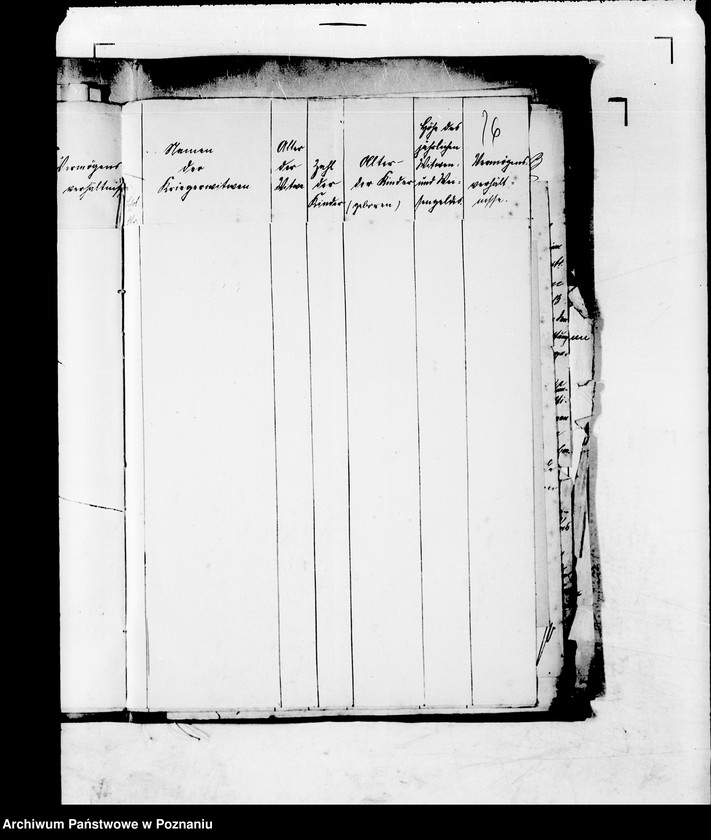 Vermögens
verhältnisse
Namen
der
Kriegerwitwen
Alter
der
Witwe
Zahl
der
Kinder
Alter
der Kinder
(geboren)
Höhe des
jährlichen
Witwen-
und Wai-
sengeldes
76
Vermögens
verhält-
nisse.
Archiwum Państwowe w Poznaniu